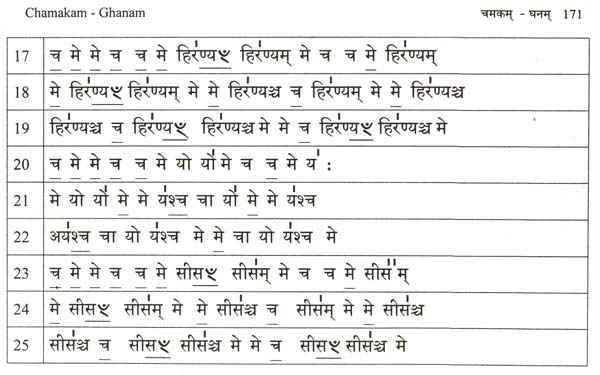 Chamakam - Ghanam चमकम् - घनम् 171
17 च॒ मे॒ मे॒ च॒ च॒ मे॒ हिर॑ण्य॒ꣳ॒ हिर॑ण्यम् मे च च मे॒ हिर॑ण्यम्
18 मे॒ हिर॑ण्य॒ꣳ॒ हिर॑ण्यम् मे॒ मे॒ हिर॑ण्यञ्च च॒ हिर॑ण्यम् मे॒ मे॒ हिर॑ण्यञ्च
19 हिर॑ण्यञ्च च॒ हिर॑ण्य॒ꣳ॒ हिर॑ण्यञ्च मे मे च॒ हिर॑ण्य॒ꣳ॒ हिर॑ण्यञ्च मे
20 च॒ मे॒ मे॒ च॒ च॒ मे॒ यो यो॑मे च॒ च॒ मे॒ य॑ :
21 मे यो यो॑ मे॒ मे य॑श्च॒ चा यो॑ मे॒ मे य॑श्च
22 अय॑श्च॒ चा यो य॑श्च मे॒ मे॒ चा यो य॑श्च मे
23 च॒ मे॒ मे॒ च॒ च॒ मे॒ सीस॒ꣳ॒ सीस॑म् मे च च मे॒ सीस॑᳚म्
24 मे॒ सीस॒ꣳ॒ सीस॑म् मे मे॒ सीस॑ञ्च च॒ सीस॑म् मे॒ मे॒ सीस॑ञ्च
25 सीस॑ञ्च च॒ सीस॒ꣳ॒ सीस॑ञ्च मे मे च॒ सीस॒ꣳ॒ सीस॑ञ्च मे